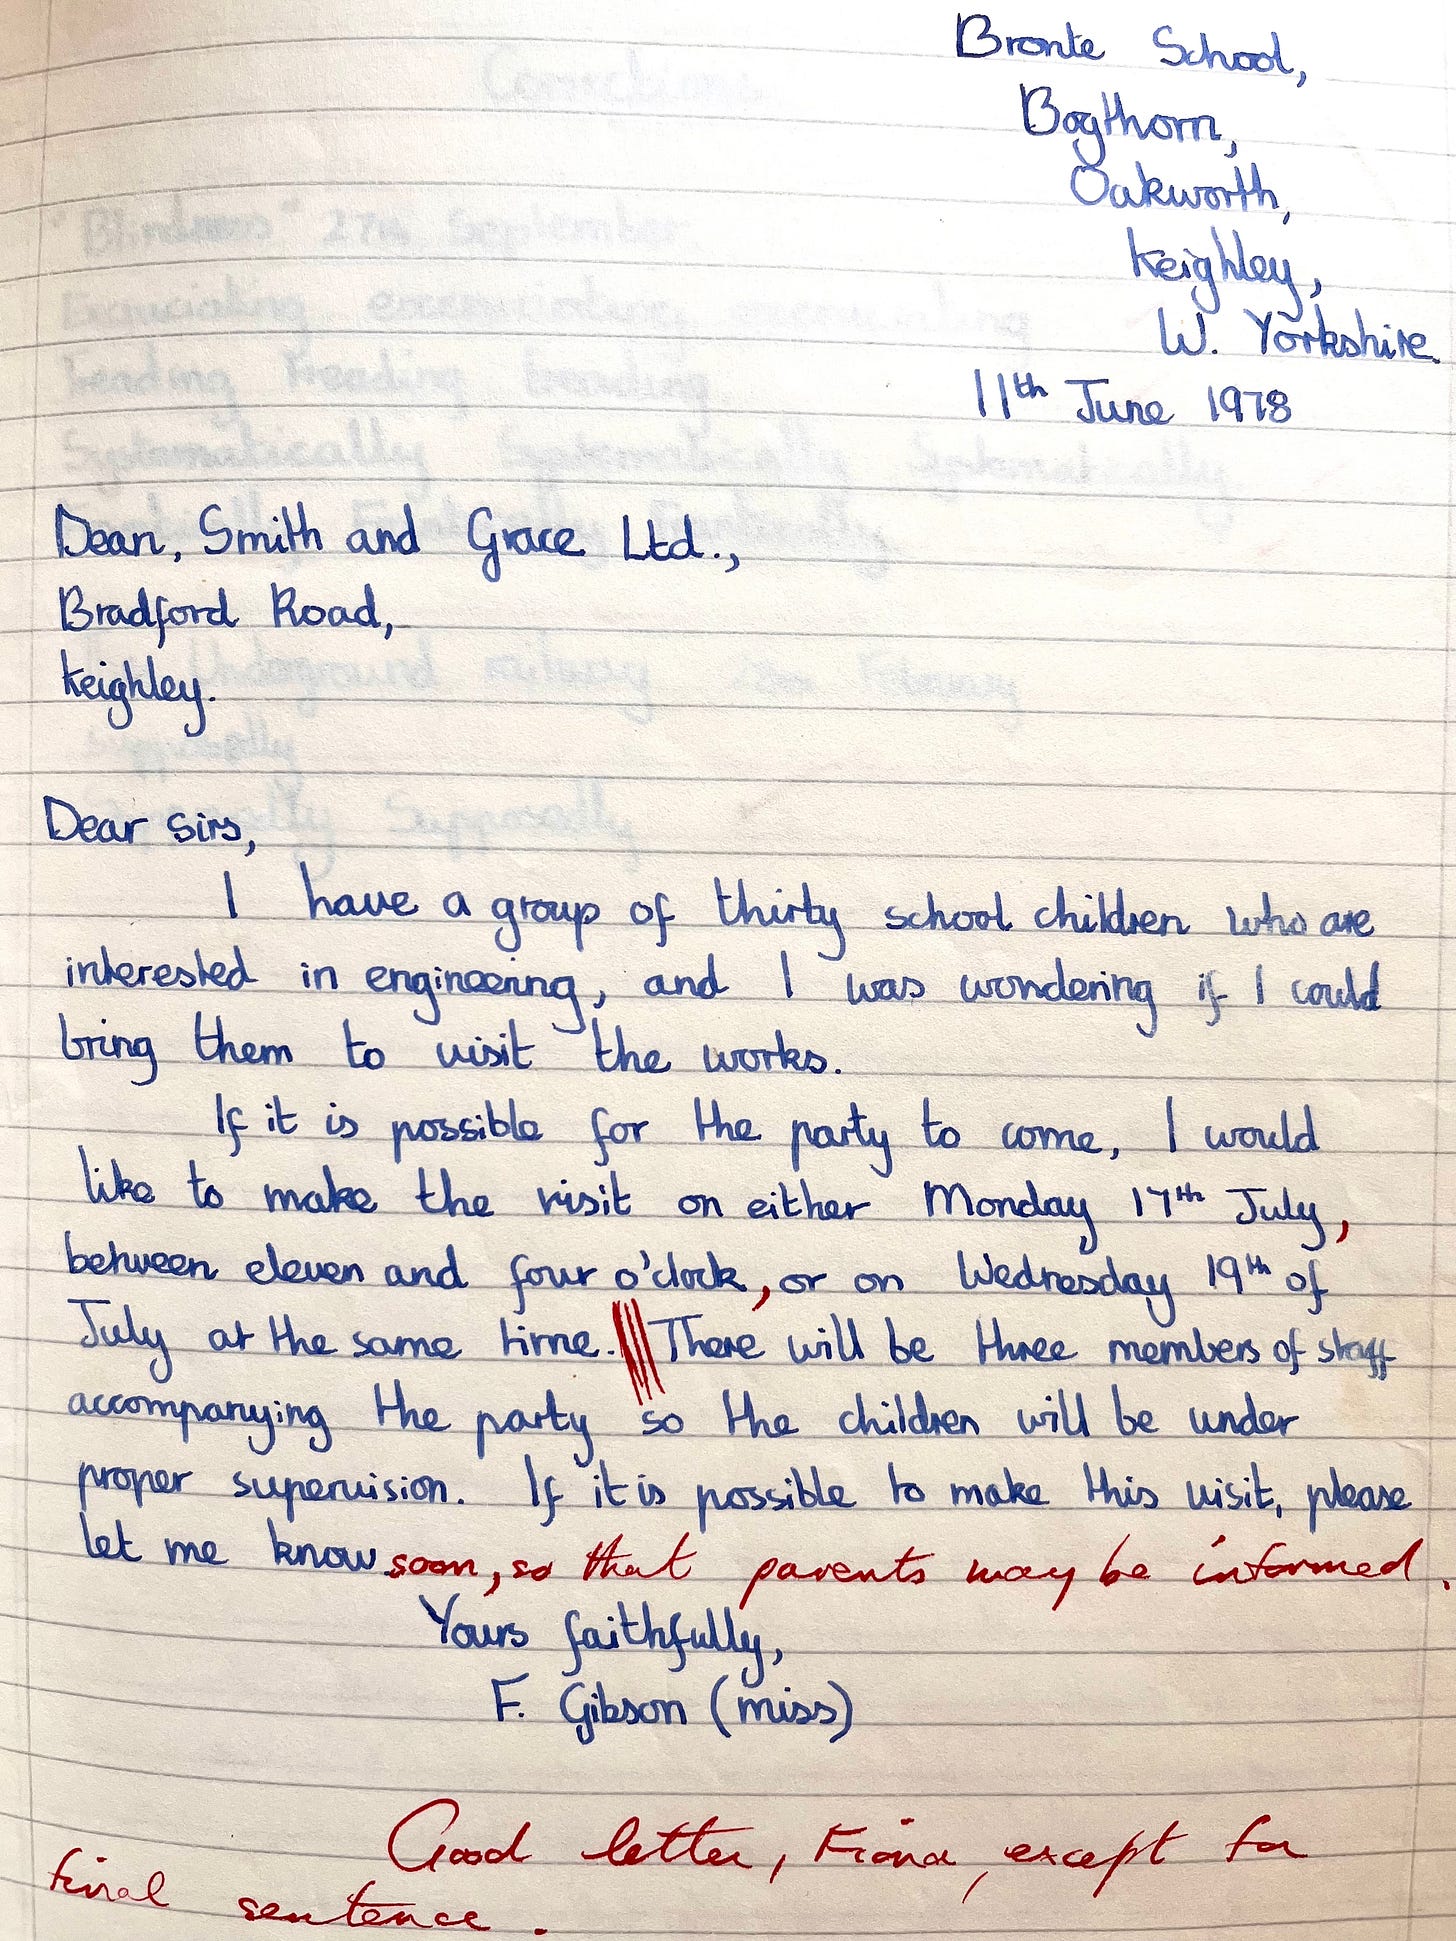 Bronte School,
Bogthorn,
Oakworth,
Keighley,
W. Yorkshire.
11th June 1978
Dean, Smith and Grace Ltd.,
Bradford Road,
Keighley.
Dear Sirs,
I have a group of thirty school children who are
interested in engineering, and I was wondering if I could
bring them to visit the works.
If it is possible for the party to come, I would
like to make the visit on either Monday 17th July,
between eleven and four o'clock, or on Wednesday 19th of
July at the same time. There will be three members of staff
accompanying the party so the children will be under
proper supervision. If it is possible to make this visit, please
let me know soon, so that parents may be informed.
Yours faithfully,
F. Gibson (miss)
Good letter, Fiona, except for
final sentence.